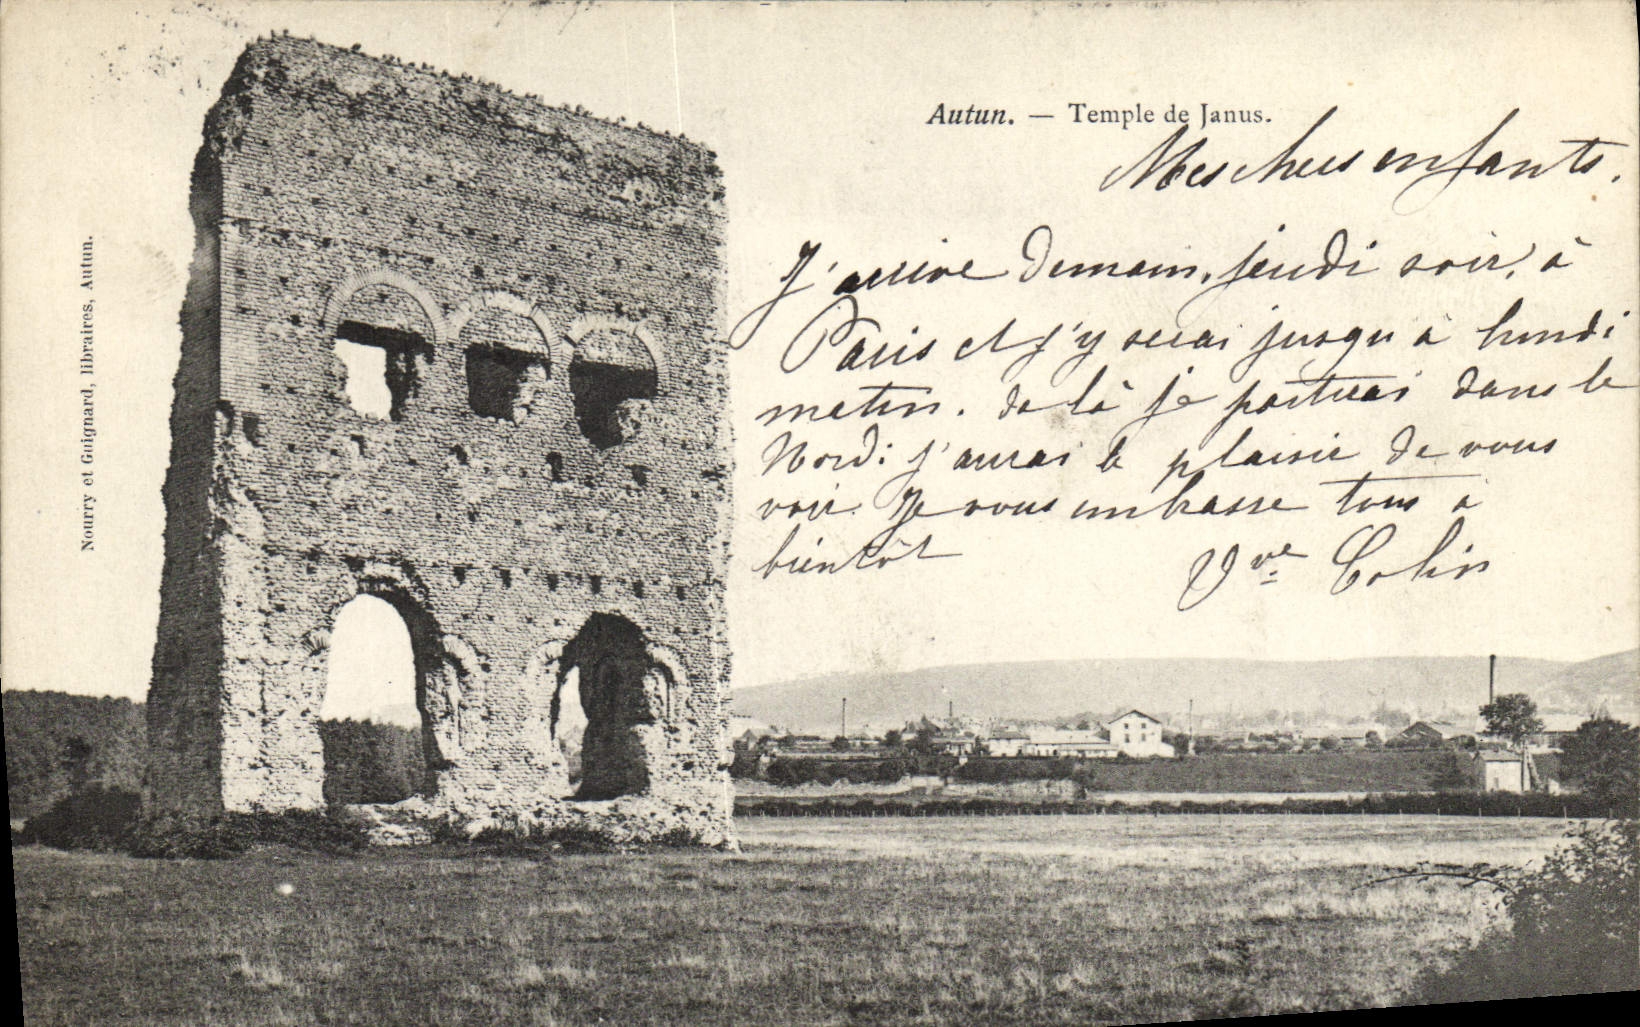 Autun. — Temple de Janus.
Mes chers enfants.
J'arrive demain, jeudi soir, à
Paris et j'y serai jusqu'à lundi
matin. de là je partirai dans le
Nord: j'aurai le plaisir de vous
voir. Je vous embrasse tous à
bientôt
Vve Colin
Nourry et Guignard, libraires, Autun.